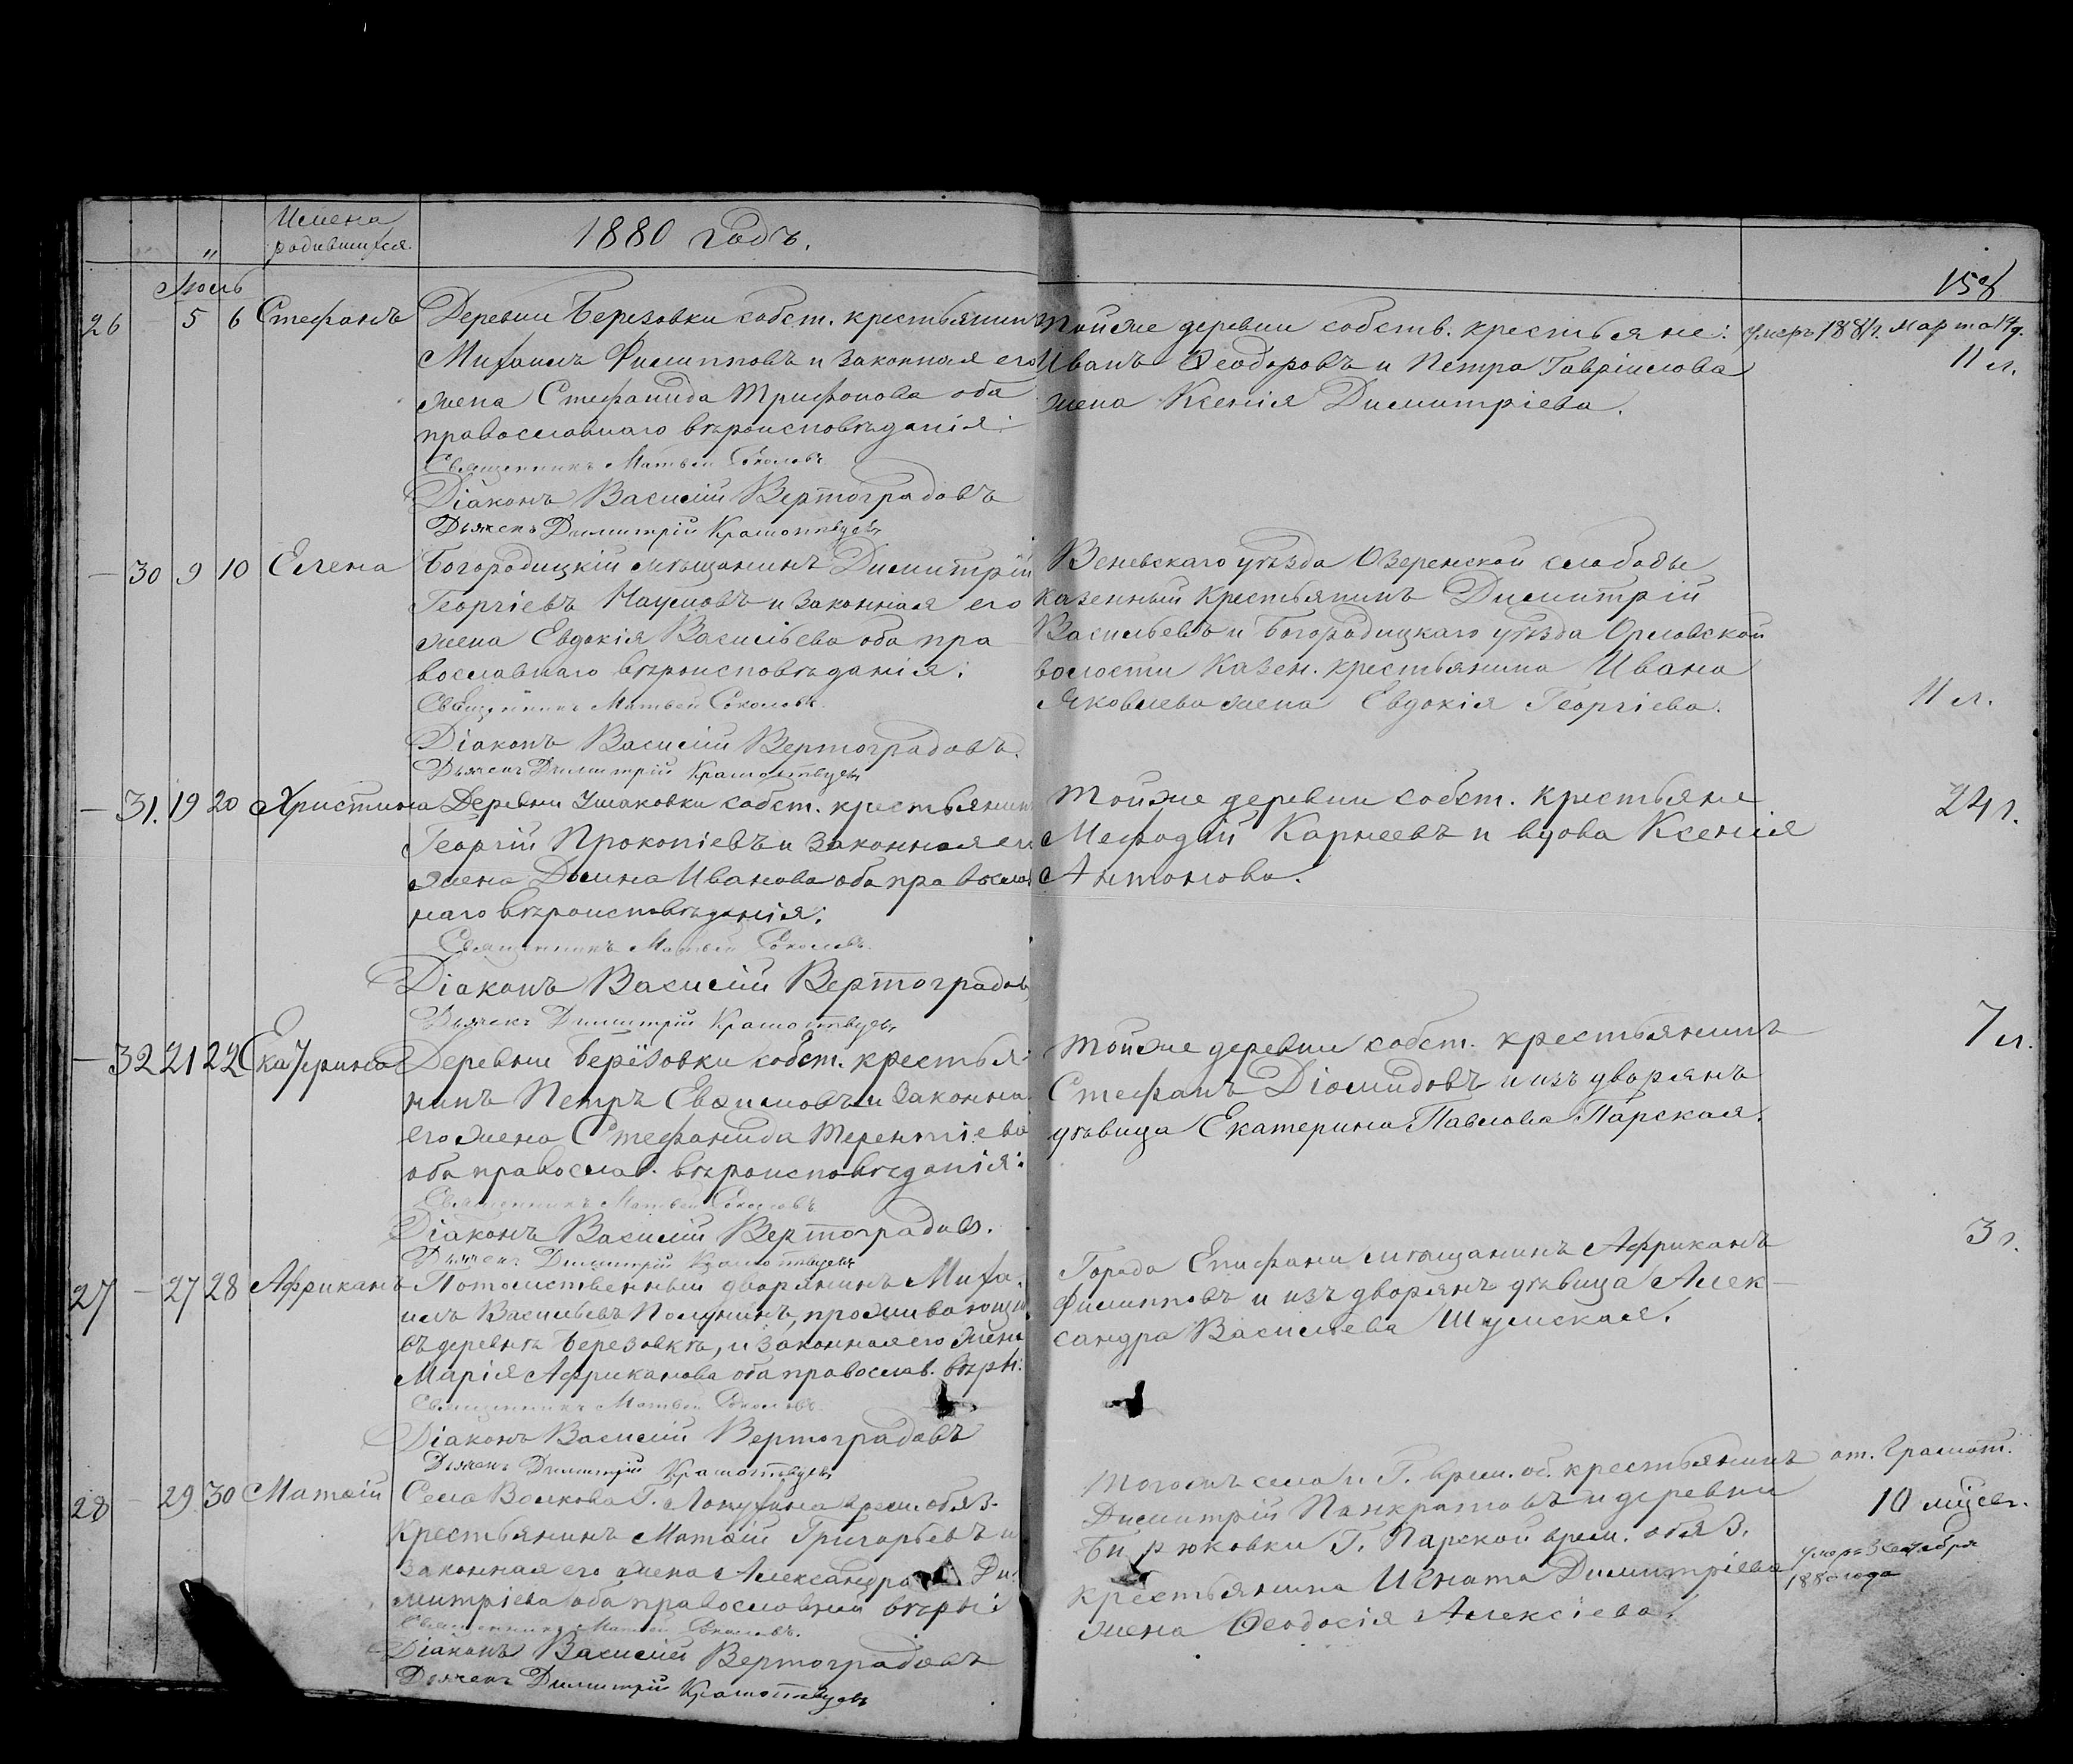 Имена
„ родившихся.
1880 годъ.
158
Іюль
26 5 6 Стефанъ
Деревни Березовки собст. крестьянинъ
Михаилъ Филипповъ и законная его
жена Стефанида Трифонова оба
православнаго вѣроисповѣданія:
Священникъ Матвей Соколовъ
Діаконъ Василій Вертоградовъ
Дьячекъ Димитрій
Тойже деревни собств. крестьяне:
Иванъ Ѳеодоровъ и Петра Гаврилова
жена Ксенія Димитріева.
умеръ 1881 г. марта
11 л.
— 30 9 10 Елена
Богородицкій мѣщанинъ Димитрій
Георгіевъ Наумовъ и законная его
жена Евдокія Васильева оба пра
вославнаго вѣроисповѣданія:
Священникъ Матвей Соколовъ
Діаконъ Василій Вертоградовъ.
Дьячекъ Димитрій
Веневскаго уѣзда Озеренской слободы
казенный крестьянинъ Димитрій
Васильевъ и Богородицкаго уѣзда Орловской
волости казен. крестьянина Ивана
Яковлева жена Евдокія Георгіева.
11 л.
— 31. 19 20 Христина
Деревни Ушаковки собст. крестьянин
Георгій Прокопіевъ и законная его
жена Домна Иванова оба правосла
наго вѣроисповѣданія:
Священникъ Матвей Соколовъ.
Діаконъ Василій Вертоградов
Дьячекъ Димитрій
Тойже деревни собст. крестьяне
Мефодій Карнеевъ и вдова Ксенія
Антонова.
24 г.
— 32 21 22 Екатерина
Деревни Берёзовки собст. крестья
нинъ Петръ Евѳимовъ и законна
его жена Стефанида Терентіева
оба православ. вѣроисповѣданія:
Священникъ Матвей Соколовъ
Діаконъ Василій Вертоградов.
Дьячекъ Димитрій
Тойже деревни собст. крестьянинъ
Стефанъ Діомидовъ и изъ дворянъ
дѣвица Екатерина Павлова Парская.
7 л.
27 — 27 28 Африканъ
Потомственный дворянинъ Миха
илъ Васильевъ Полунинъ, проживающій
въ деревнѣ Березовкѣ, и законная его жена
Марія Африканова оба православ. вѣры:
Священникъ Матвей Соколовъ
Діаконъ Василій Вертоградовъ
Дьячекъ Димитрій
Города Епифани мѣщанинъ Африканъ
Филипповъ и изъ дворянъ дѣвица Алек-
сандра Васильева Шумская.
3 г.
28 — 29 30 Матѳій
Села Волкова Г. Лопухина врем. обяз.
Крестьянинъ Матѳій Григорьевъ и
законная его жена Александра Ди
митріева оба православной вѣры:
Священникъ Матвей Соколовъ.
Діаконъ Василій Вертоградовъ
Дьячекъ Димитрій
Тогожъ села и Г. врем. об. крестьянинъ
Димитрій Панкратовъ и деревни
Бирюковки Г. Парской врем. обяз.
крестьянина Игната Димитріева
жена Ѳеодосія Алексіева.
от. Грамот.
10 мѣсяц.
умеръ 3 сентября
1880 года